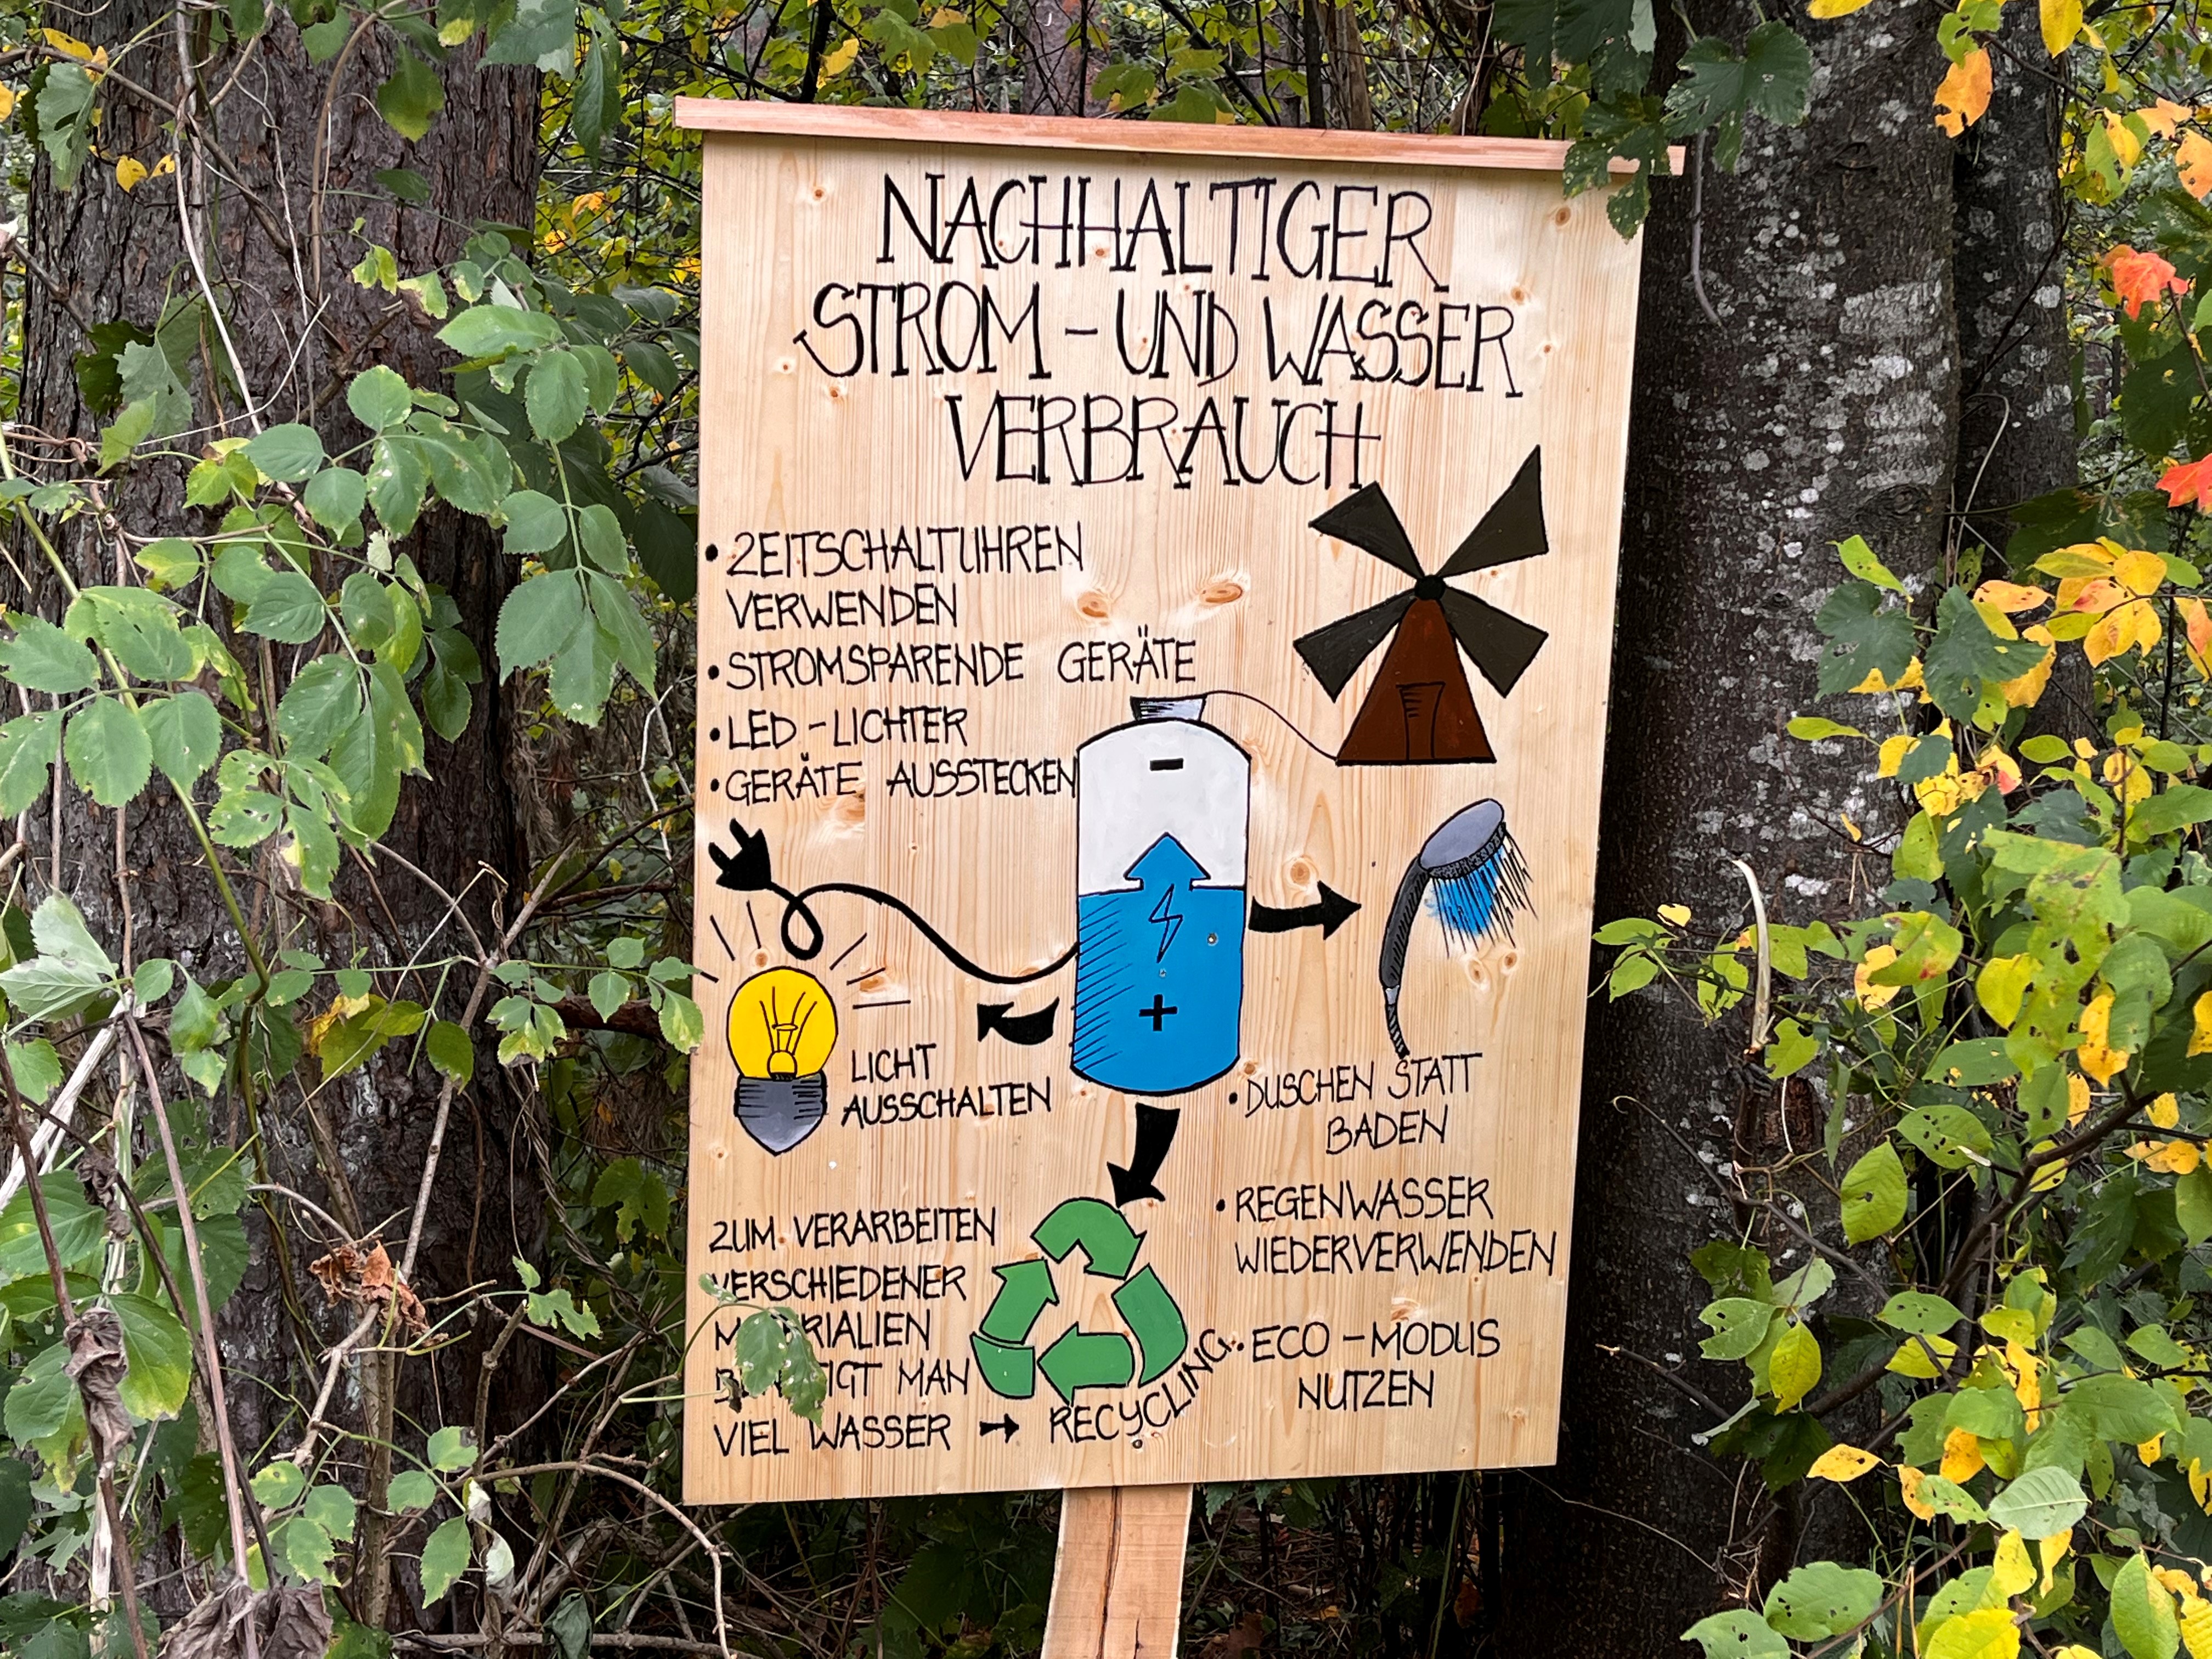 NACHHALTIGER
STROM - UND WASSER
VERBRAUCH
• ZEITSCHALTUHREN
VERWENDEN
• STROMSPARENDE GERÄTE
• LED - LICHTER
• GERÄTE AUSSTECKEN
-
+
LICHT
AUSSCHALTEN
• DUSCHEN STATT
BADEN
• REGENWASSER
WIEDERVERWENDEN
• ECO - MODUS
NUTZEN
ZUM VERARBEITEN
VERSCHIEDENER
MATERIALIEN
MAN
VIEL WASSER → RECYCLING